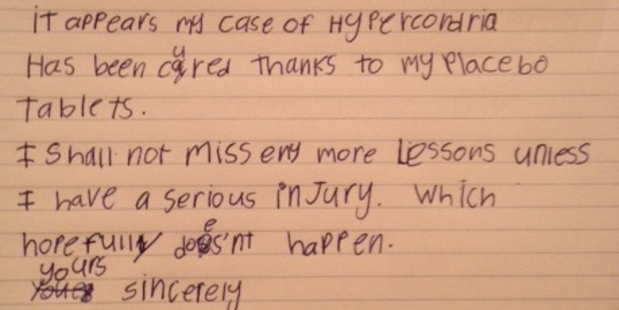 it appears my case of Hypercondria
Has been cured thanks to my Placebo
Tablets.
I Shall not miss eny more Lessons unless
I have a serious inJury. Which
hopefully does'nt happen.
yours sincerely